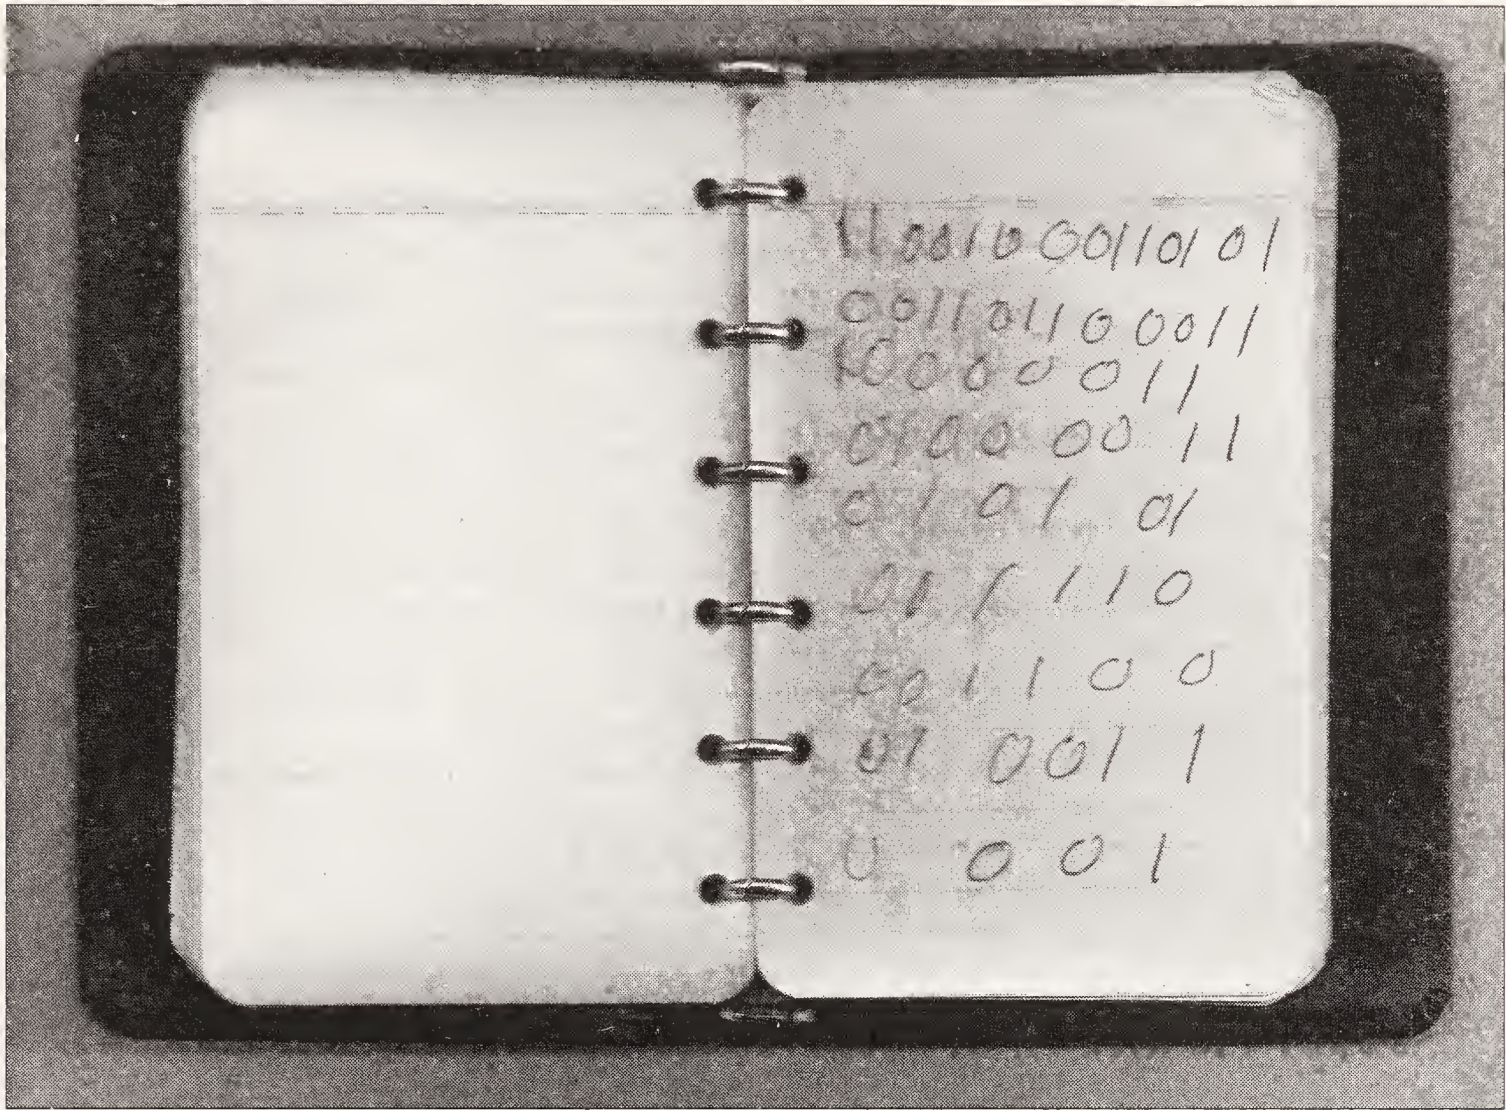 11 0010 001101 01
0011011 0 0011
100000 11
0100 00 11
01 01 01
01 1110
001100
01 001 1
0 001